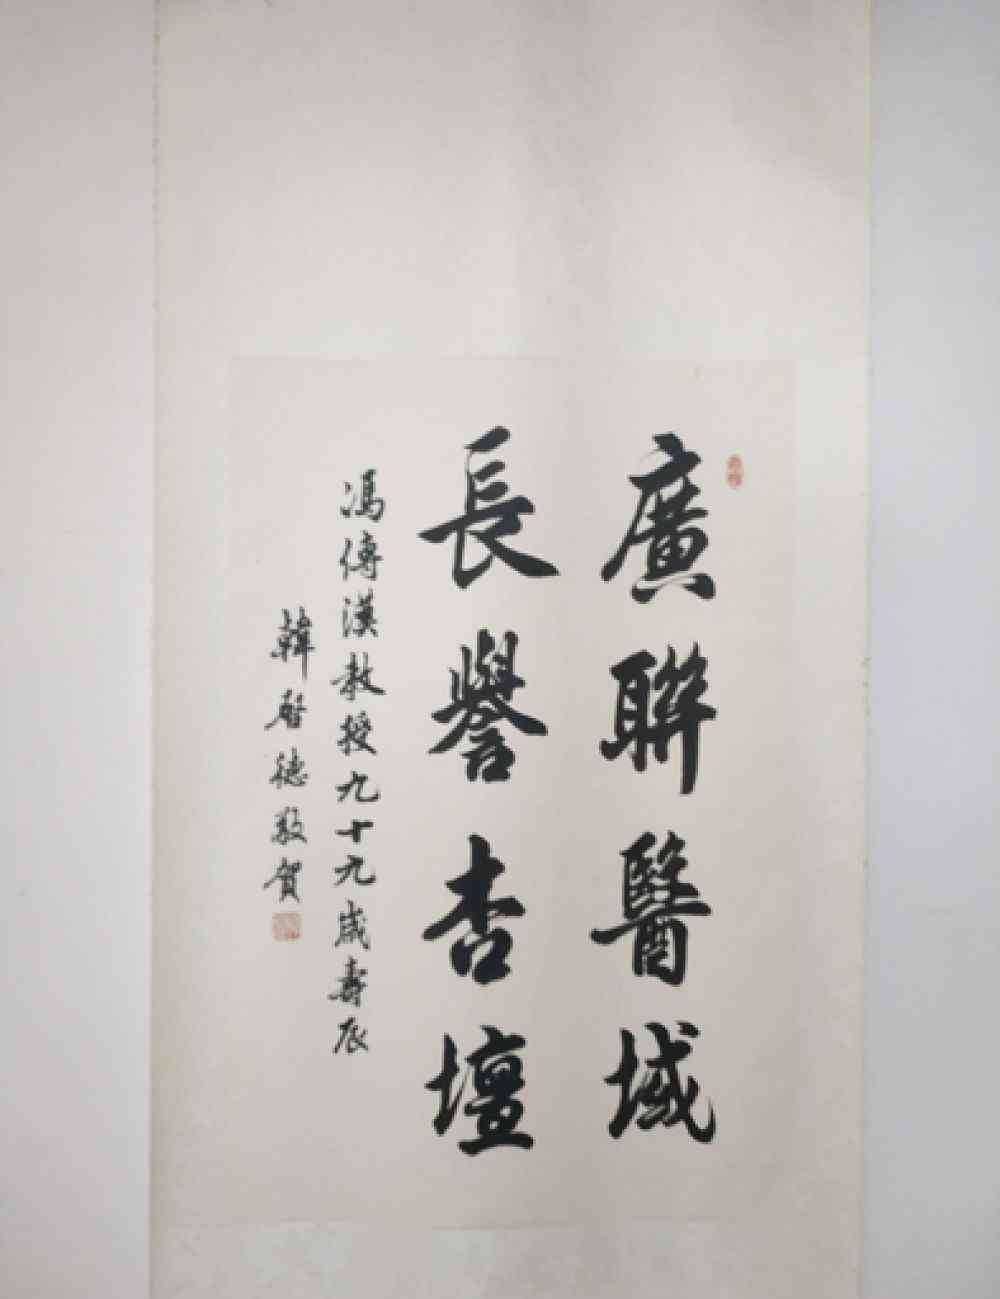 廣聯醫域
長譽杏壇
馮傳漢教授九十九歲壽辰
韓啟德敬賀